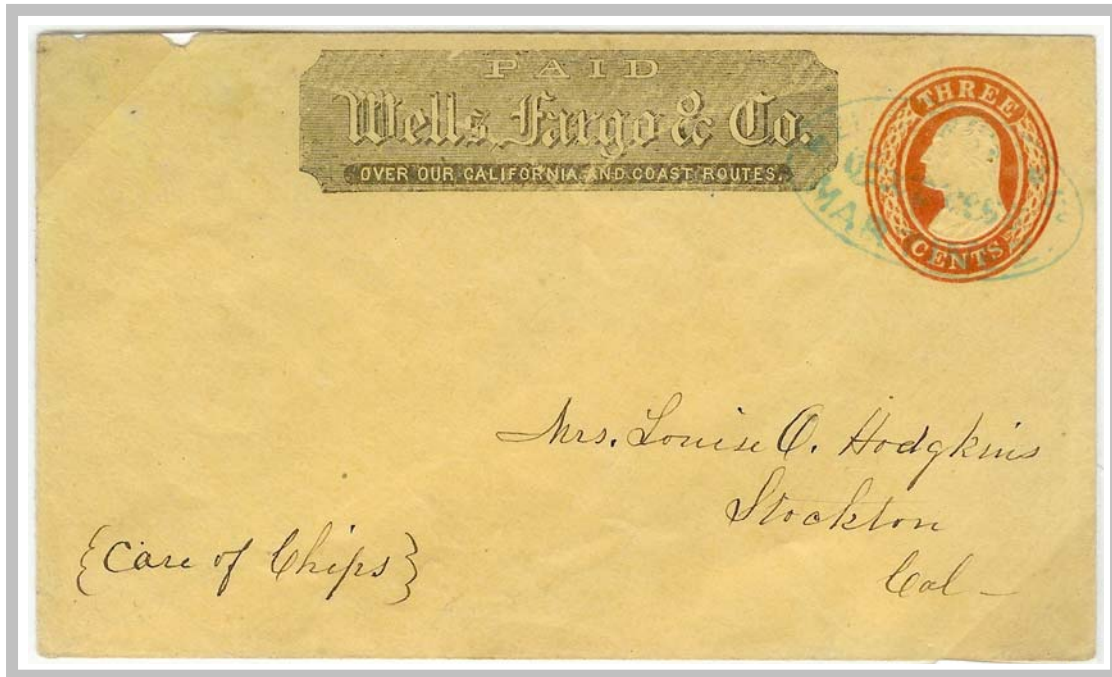 PAID
Wells, Fargo & Co.
OVER OUR CALIFORNIA AND COAST ROUTES.
THREE
CENTS
Mrs. Louise O. Hodgkins
Stockton
Cal –
{Care of Chips}